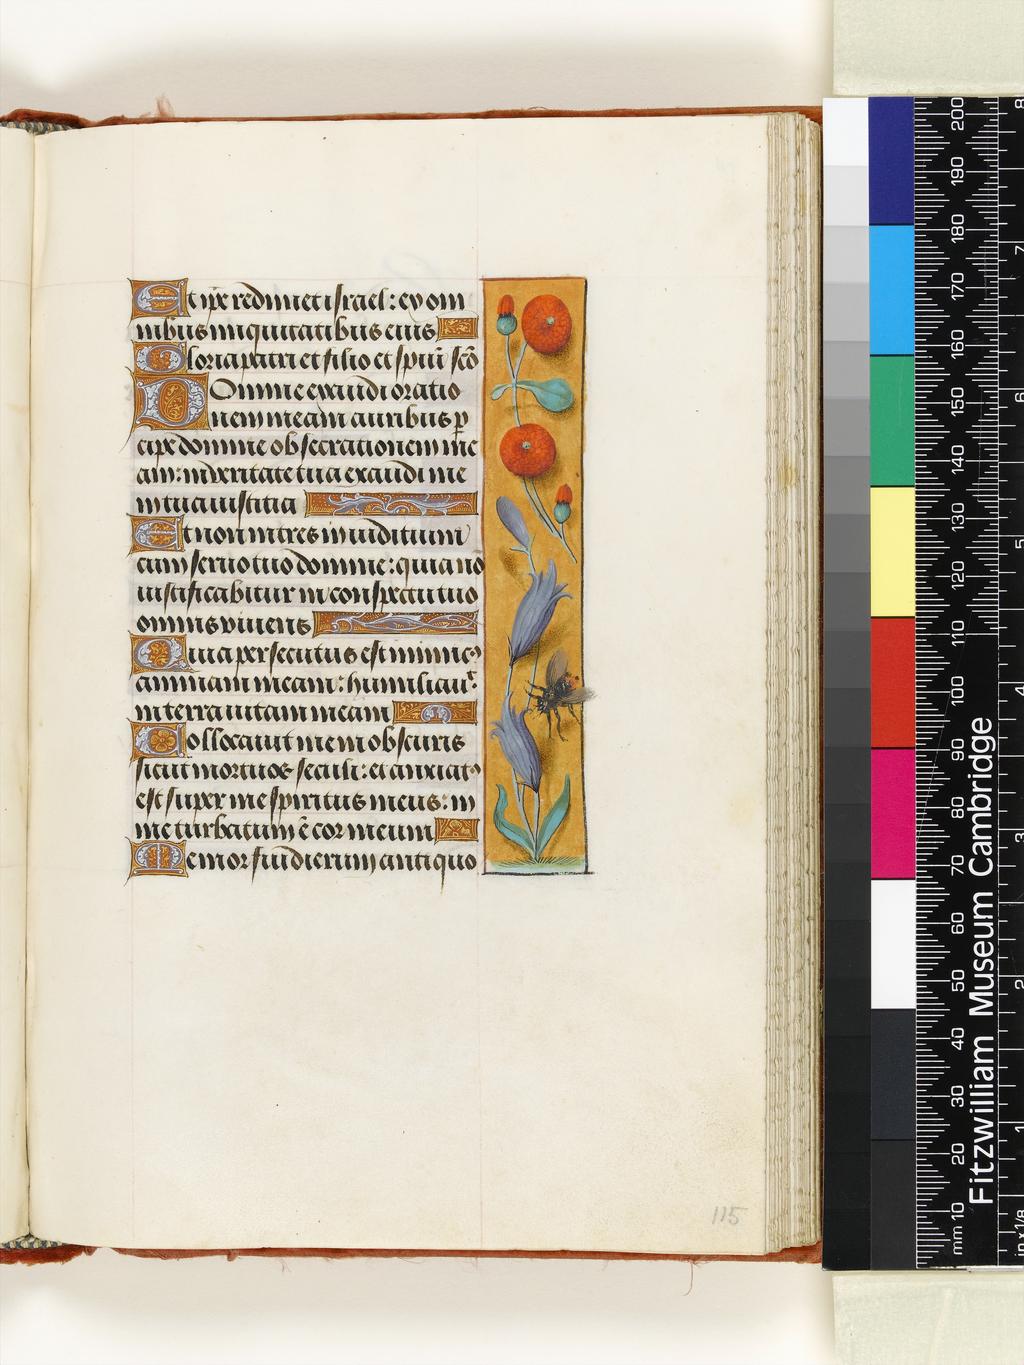 Et ipẽ redimet israel: ex om
nibus iniquitatibus eius
Gloria patri et filio et spũi scõ
Domine exaudi oratio
nem meam auribus p
cipe domine obsecrationem me
am: in veritate tua exaudi me
in tua iusticia
Et non intres in iuditium
cum seruo tuo domine: quia nõ
iustificabitur in conspectu tuo
omnis viuens
Quia persecutus est inimic9
animam meam: humiliauit
in terra uitam meam
Collocauit me in obscuris
sicut mortuos seculi: et anxiat9
est super me spiritus meus: in
me turbatum ẽ cor meum
Memor fui dierum antiquo
115
Fitzwilliam Museum Cambridge
mm 10 20 30 40 50 60 70 80 90 100 110 120 130 140 150 160 170 180 190 200
in x 1/8 1 2 3 4 5 6 7 8